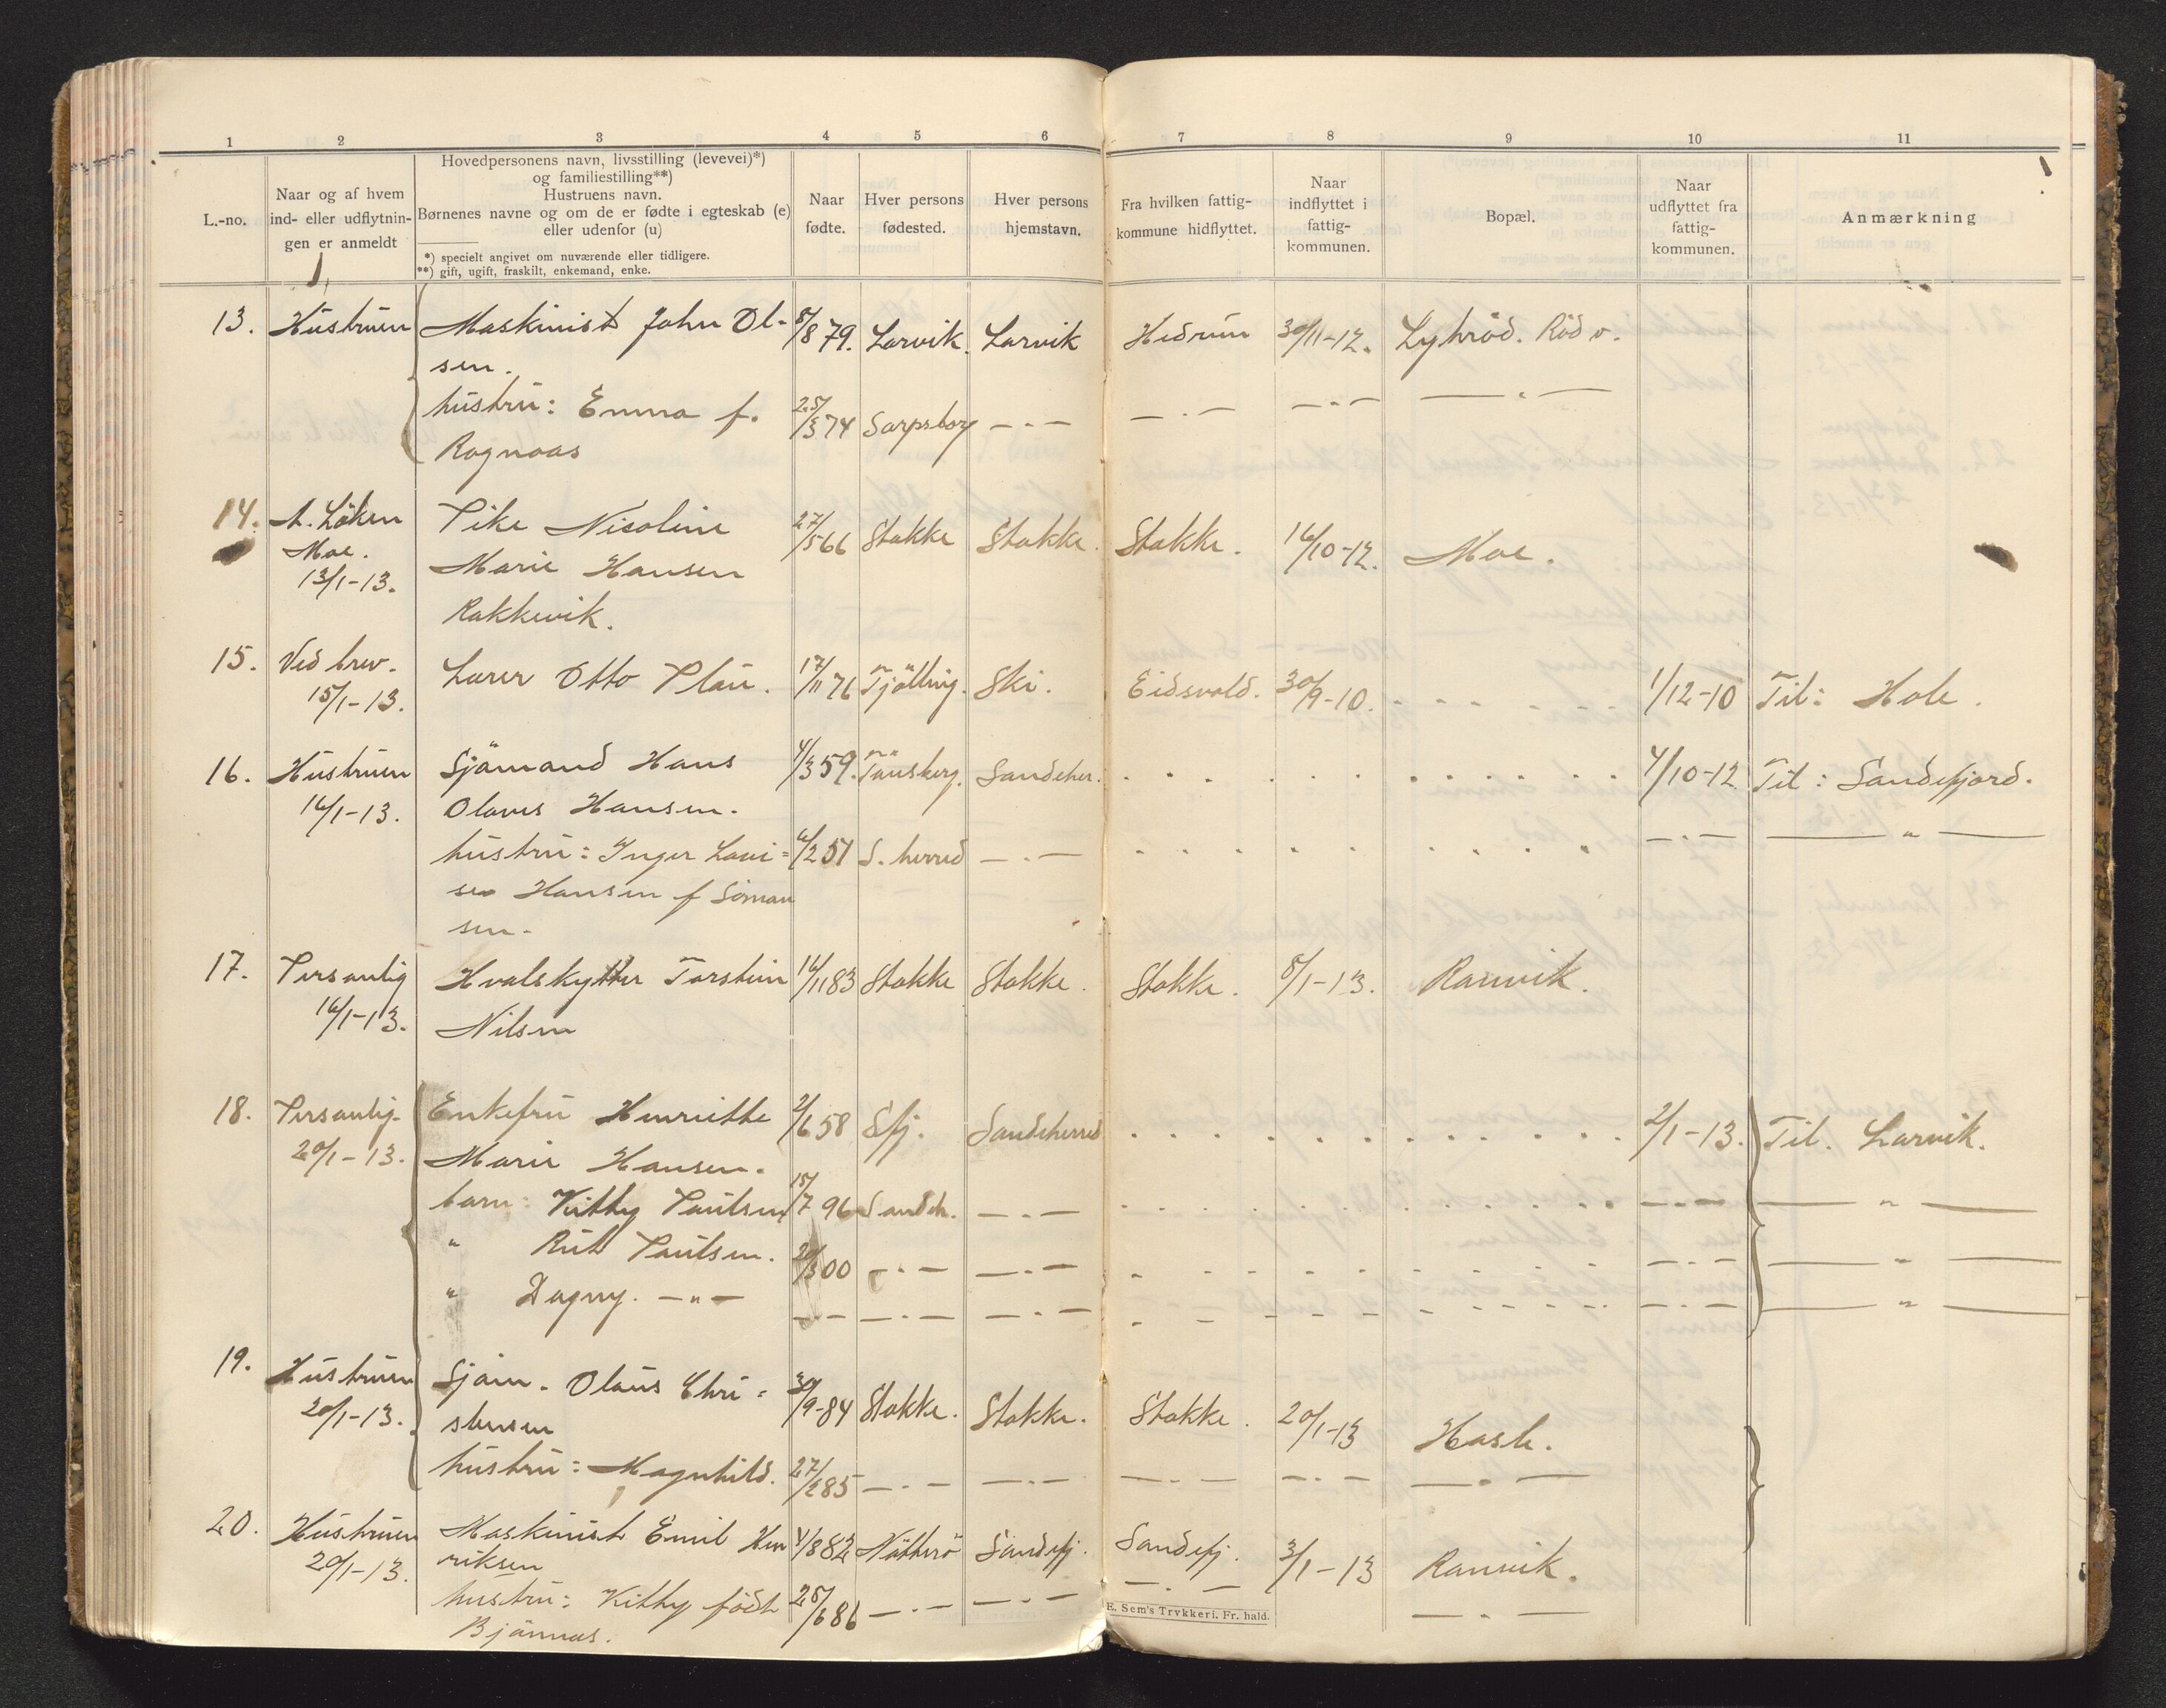 1 2 3 4 5 6 7 8 9 10 11
L.-no.
Naar og af hvem
ind- eller udflytnin-
gen er anmeldt
Hovedpersonens navn, livsstilling (levevei)*)
og familiestilling**)
Hustruens navn.
Børnenes navne og om de er fødte i egteskab (e)
eller udenfor (u)
*) specielt angivet om nuværende eller tidligere.
**) gift, ugift, fraskilt, enkemand, enke.
Naar
fødte.
Hver persons
fødested.
Hver persons
hjemstavn.
Fra hvilken fattig-
kommune hidflyttet.
Naar
indflyttet i
fattig-
kommunen.
Bopæl.
Naar
udflyttet fra
fattig-
kommunen.
Anmærkning
13. Hustruen Maskinist John Ol- 8/8 79. Larvik. Larvik Hedrum 30/11-12. Lyhröd. Röd v.
sen.
hustru: Emma f. 25/3 74 Sarpsborg — " — — " — — " — — " —
Rognaas
14. A. Löken Pike Nicoline 27/5 66 Stokke Stokke. Stokke. 16/10-12. Moe.
Moe. Marie Hansen
13/1-13. Rakkevik.
15. Ved brev. Lærer Otto Plau. 17/11 76 Tjölling. Ski. Eidsvold. 30/9-10. 1/12-10 Til: Hole.
15/1-13.
16. Hustruen Sjömand Hans 4/3 59. Tönsberg. Sandeher. 4/10-12 Til: Sandefjord.
16/1-13. Olaves Hansen.
hustru: Inger Lovi= 6/2 51 S. herred — " — — " — — " —
se Hansen f Simon
sen.
17. Personlig Hvalskytter Torstein 16/11 83 Stokke Stokke. Stokke. 8/1-13. Ranvik.
16/1-13. Nilsen
18. Personlig. Enkefru Henriette 2/6 58 Sfj. Sandeherred 2/1-13. Til. Larvik.
20/1-13. Marie Hansen.
barn: Kitty Paulsen 15/7 96 Sandeh. — " — — " — — " —
" Rut Paulsen. 20/3 00 — " — — " — — " — — " —
" Dagny. — " — — " — — " — — " — — " — — " —
19. Hustruen Sjöm. Olaus Chri= 30/9-84 Stokke. Stokke. Stokke. 20/1-13 Hasle.
20/1-13. stensen
hustru: Magnhild. 27/2 85 — " — — " — — " — — " — — " —
20. Hustruen Maskinist Emil Hen 4/8 82 Nötterö Sandefj. Sandefj. 3/1-13 Ranvik.
20/1-13. riksen
hustru: Kitty födt 28/6 86 — " — — " — — " — — " —
Bjönnes.
E. Sem's Trykkeri. Fr. hald.